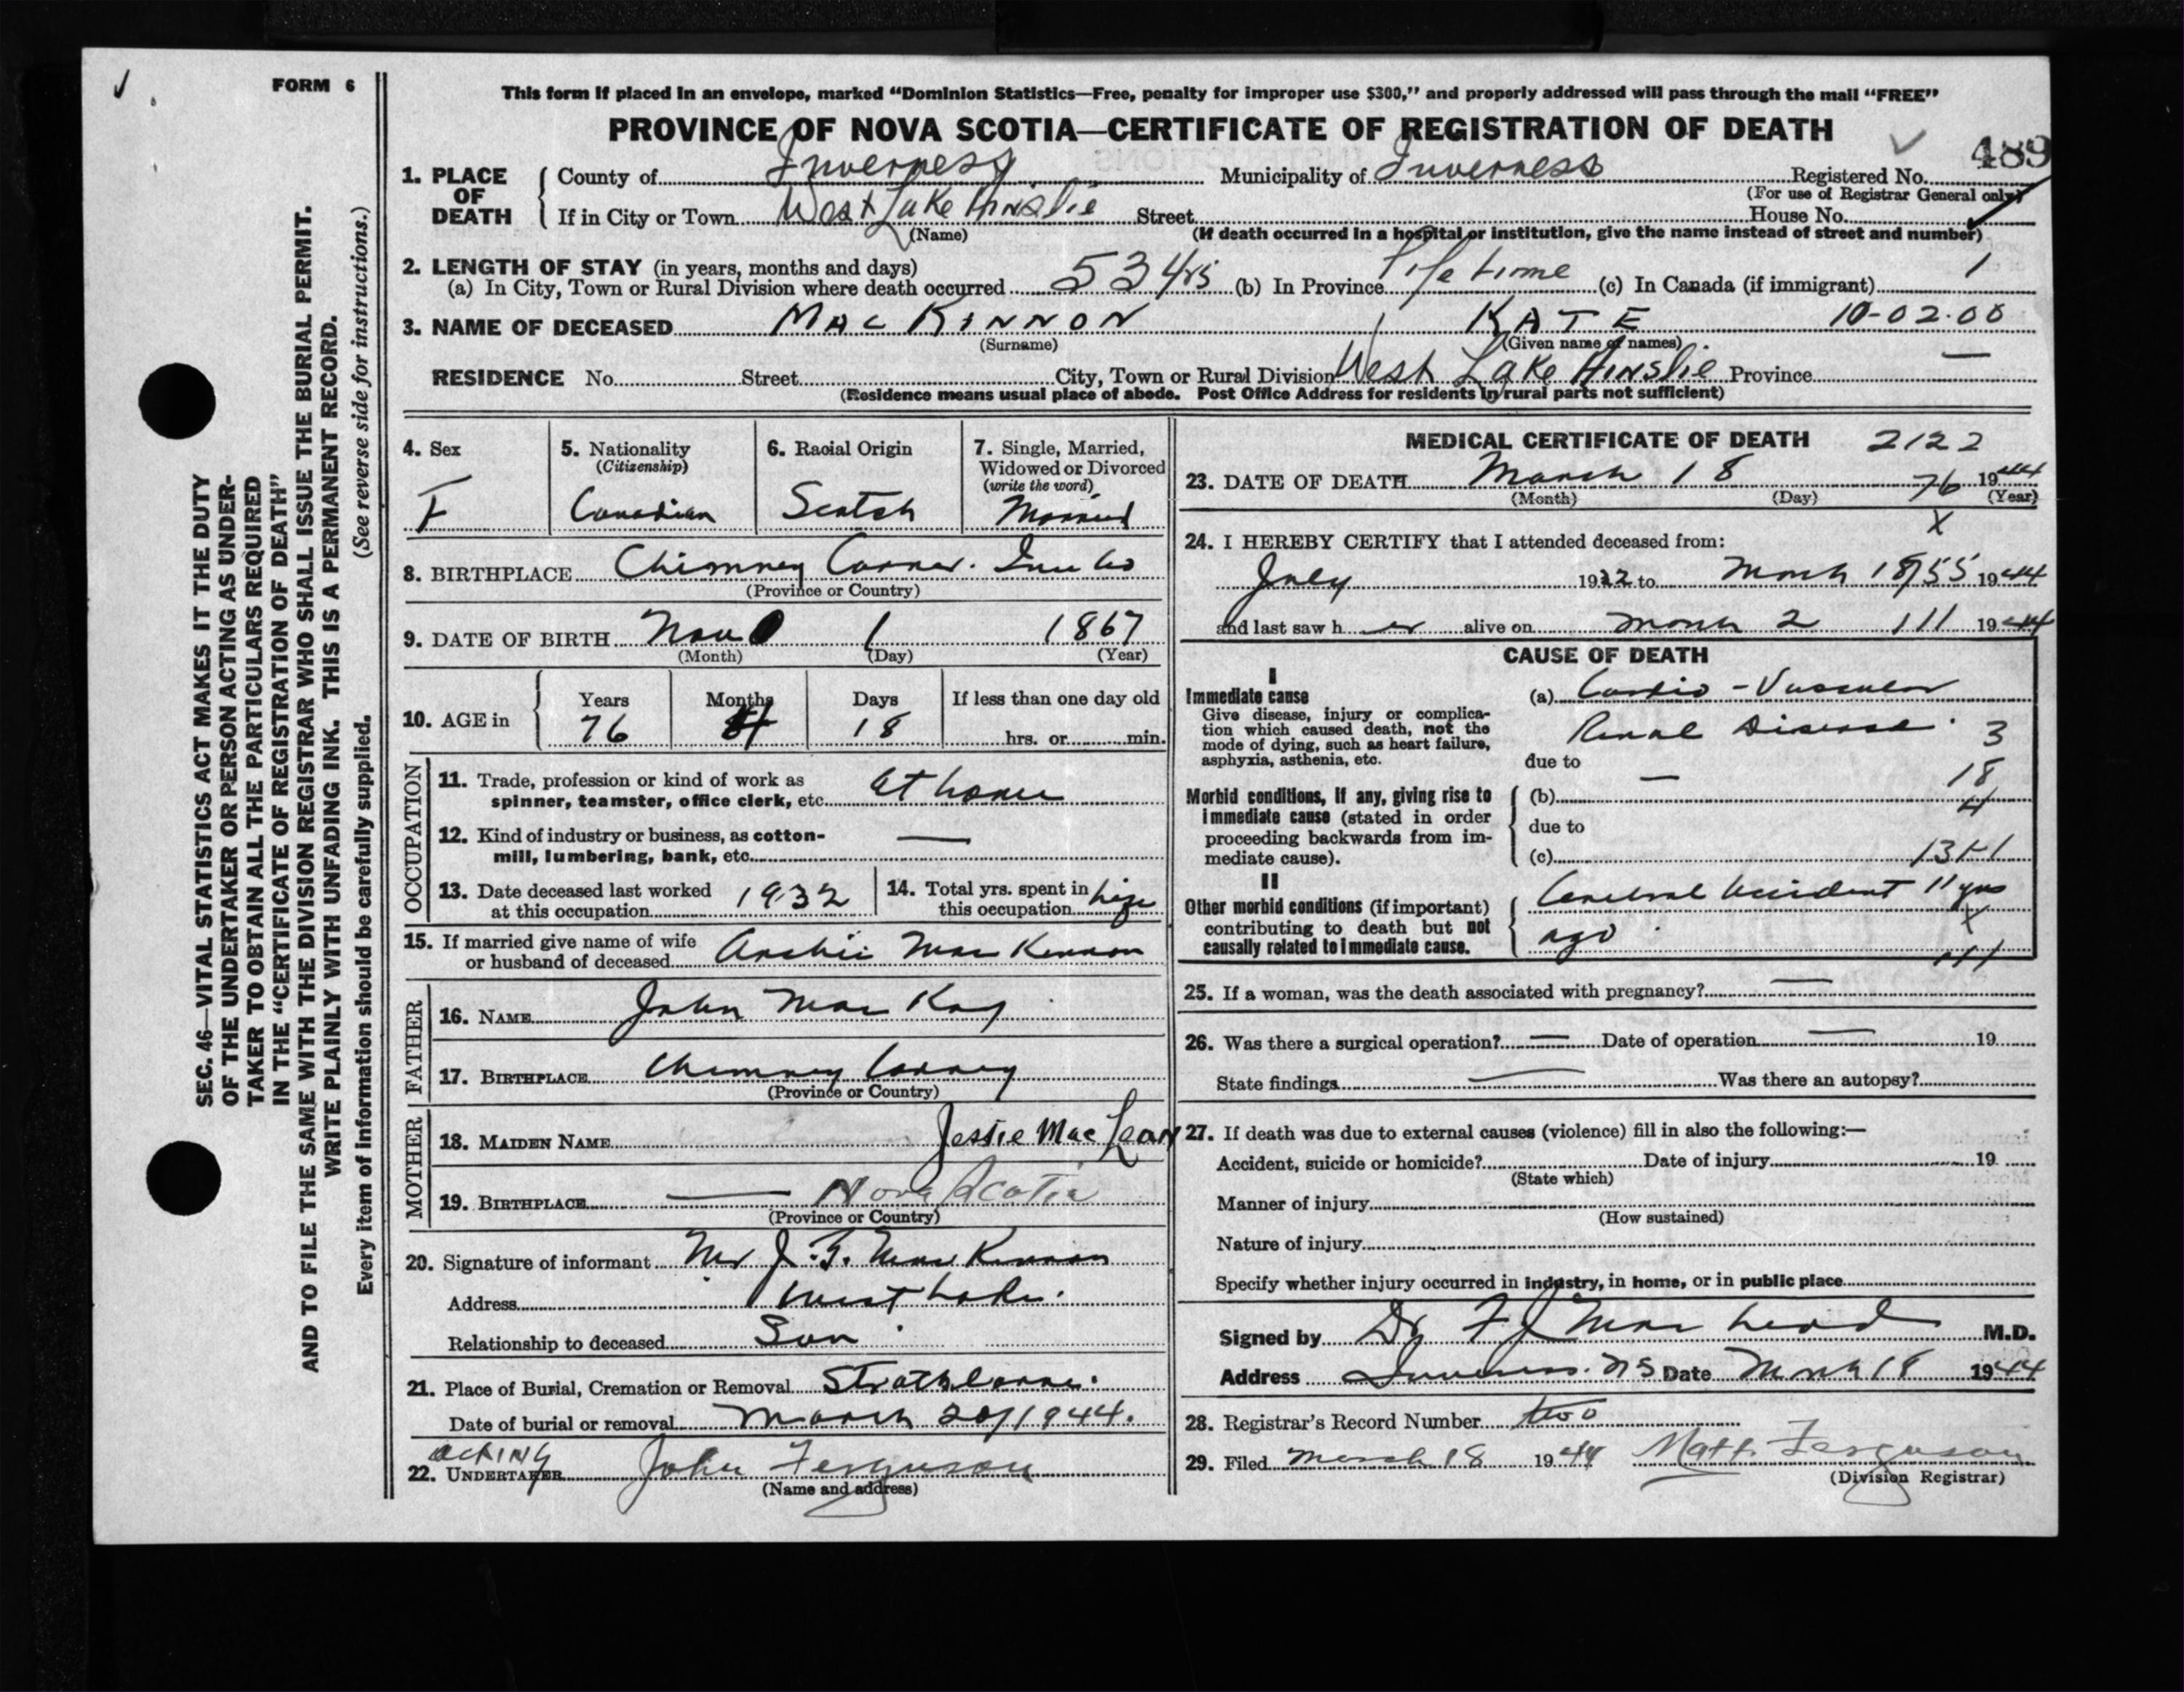 FORM 6
This form if placed in an envelope, marked “Dominion Statistics—Free, penalty for improper use $300,” and properly addressed will pass through the mail “FREE”
PROVINCE OF NOVA SCOTIA—CERTIFICATE OF REGISTRATION OF DEATH
489
1. PLACE OF DEATH County of Inverness Municipality of Inverness Registered No.
(For use of Registrar General only)
If in City or Town West Lake Ainslie Street House No.
(Name) (If death occurred in a hospital or institution, give the name instead of street and number)
2. LENGTH OF STAY (in years, months and days)
(a) In City, Town or Rural Division where death occurred 53 yrs (b) In Province life time (c) In Canada (if immigrant)
3. NAME OF DECEASED MacKINNON KATE 10-02.00
(Surname) (Given name or names)
RESIDENCE No. Street City, Town or Rural Division West Lake Ainslie Province
(Residence means usual place of abode. Post Office Address for residents in rural parts not sufficient)
SEC. 46—VITAL STATISTICS ACT MAKES IT THE DUTY
OF THE UNDERTAKER OR PERSON ACTING AS UNDER-
TAKER TO OBTAIN ALL THE PARTICULARS REQUIRED
IN THE “CERTIFICATE OF REGISTRATION OF DEATH”
AND TO FILE THE SAME WITH THE DIVISION REGISTRAR WHO SHALL ISSUE THE BURIAL PERMIT.
WRITE PLAINLY WITH UNFADING INK. THIS IS A PERMANENT RECORD.
Every item of information should be carefully supplied. (See reverse side for instructions.)
4. Sex 5. Nationality 6. Racial Origin 7. Single, Married,
(Citizenship) Widowed or Divorced
(write the word)
F Canadian Scotch Married
8. BIRTHPLACE Chimney Corner. Inv Co
(Province or Country)
9. DATE OF BIRTH Nov 1 1867
(Month) (Day) (Year)
10. AGE in Years Months Days If less than one day old
76 4 18 hrs. or min.
OCCUPATION
11. Trade, profession or kind of work as
spinner, teamster, office clerk, etc. at home
12. Kind of industry or business, as cotton-
mill, lumbering, bank, etc. —
13. Date deceased last worked
at this occupation 1932
14. Total yrs. spent in
this occupation life
15. If married give name of wife
or husband of deceased Archie MacKinnon
FATHER
16. NAME John MacKay
17. BIRTHPLACE Chimney Corner
(Province or Country)
MOTHER
18. MAIDEN NAME Jessie MacLean
19. BIRTHPLACE — Nova Scotia
(Province or Country)
20. Signature of informant Mr J. MacKinnon
Address West Lake.
Relationship to deceased Son
21. Place of Burial, Cremation or Removal Strathlorne.
Date of burial or removal March 20/1944.
acting
22. UNDERTAKER John Ferguson
(Name and address)
MEDICAL CERTIFICATE OF DEATH 2122
23. DATE OF DEATH March 18 76 1944
(Month) (Day) (Year)
X
24. I HEREBY CERTIFY that I attended deceased from:
July 1932 to March 18 55 1944
and last saw her alive on March 2 111 1944
CAUSE OF DEATH
I
Immediate cause
Give disease, injury or complica-
tion which caused death, not the
mode of dying, such as heart failure,
asphyxia, asthenia, etc.
(a) Cardio-Vascular
Renal Disease. 3
due to — 18
Morbid conditions, if any, giving rise to
immediate cause (stated in order
proceeding backwards from im-
mediate cause).
(b) 4
due to
(c) 131-1
II
Other morbid conditions (if important)
contributing to death but not
causally related to immediate cause.
Cerebral Accident 11 yrs
X
ago. 111
25. If a woman, was the death associated with pregnancy? —
26. Was there a surgical operation? — Date of operation — 19
State findings — Was there an autopsy?
27. If death was due to external causes (violence) fill in also the following:—
Accident, suicide or homicide? Date of injury 19
(State which)
Manner of injury
(How sustained)
Nature of injury
Specify whether injury occurred in industry, in home, or in public place
Signed by Dr F J MacLeod M.D.
Address Inverness. NS Date March 18 1944
28. Registrar's Record Number two
29. Filed March 18 1944 Matt. Ferguson
(Division Registrar)